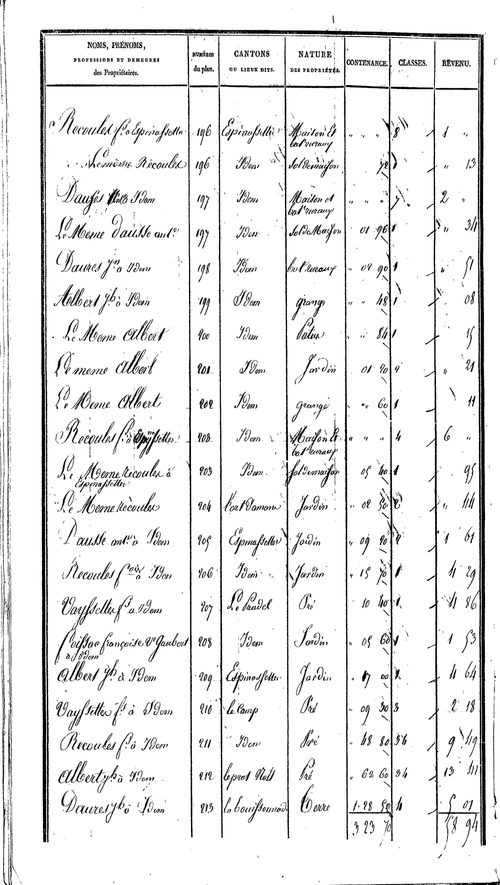 NOMS, PRÉNOMS, PROFESSIONS ET DEMEURES des Propriétaires. NUMÉROS du plan. CANTONS OU LIEUX DITS. NATURE DES PROPRIÉTÉS. CONTENANCE. CLASSES. REVENU.
Recoules fs à Espinassettes 196 Espinassettes Maison et bat. ruraux " " " 8 1 "
Le même Recoules 196 Idem Sol de maison " " 72 1 " 13
Dausse Idem 197 Idem Maison et bat. ruraux " " " 7 2 "
Le Meme dausse ant. 197 Idem Sol de Maison " 01 96 1 " 34
Daures à Idem 198 Idem bat. ruraux " 02 90 1 " 51
Albert à Idem 199 Idem grange " " 48 1 08
Le Meme Albert 200 Idem Patus " " 84 1 15
Le meme Albert 201 Idem Jardin 01 20 2 " 21
Le Meme Albert 202 Idem grange " " 60 1 11
Recoules fs à Espinassettes 203 Idem Maison et bat. ruraux " " " 4 6 "
Le Meme recoules à Espinassettes 203 Idem Sol de maison " 05 40 1 " 95
Le Meme recoules 204 Jardin " 02 50 2 " 44
Dausse ant. à Idem 205 Espinassettes Jardin " 09 20 2 1 61
Recoules à Idem 206 Idem Jardin " 15 70 1 4 29
Vayssettes fs à Idem 207 Pré " 10 40 1 4 86
Françoise Ve Gaubert à Idem 208 Idem Jardin " 05 60 1 1 53
Albert à Idem 209 Espinassettes Jardin " 17 00 1 4 64
Vayssettes fs à Idem 210 le camp Pré " 09 30 3 2 18
Recoules fs à Idem 211 Idem Pré " 48 80 3 4 9 49
Albert à Idem 212 Pré " 62 60 3 4 13 41
Daures à Idem 213 Terre 1 28 50 4 5 01
3 23 70 58 94